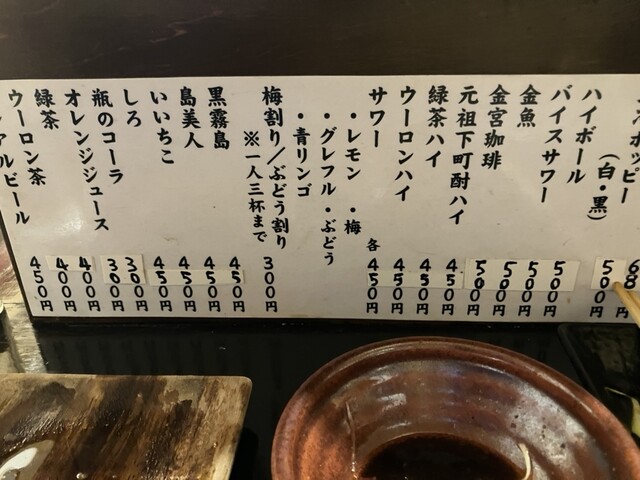 ホッピー
(白・黒) 500円
ハイボール 500円
バイスサワー 500円
金魚 500円
金宮珈琲 500円
元祖下町酎ハイ 450円
緑茶ハイ 450円
ウーロンハイ 450円
サワー 各450円
・レモン ・梅
・グレフル ・ぶどう
・青リンゴ
梅割り/ぶどう割り 300円
※一人三杯まで
黒霧島 450円
島美人 450円
いいちこ 450円
しろ 450円
瓶のコーラ 300円
オレンジジュース 300円
緑茶 400円
ウーロン茶 400円
アルビール 450円